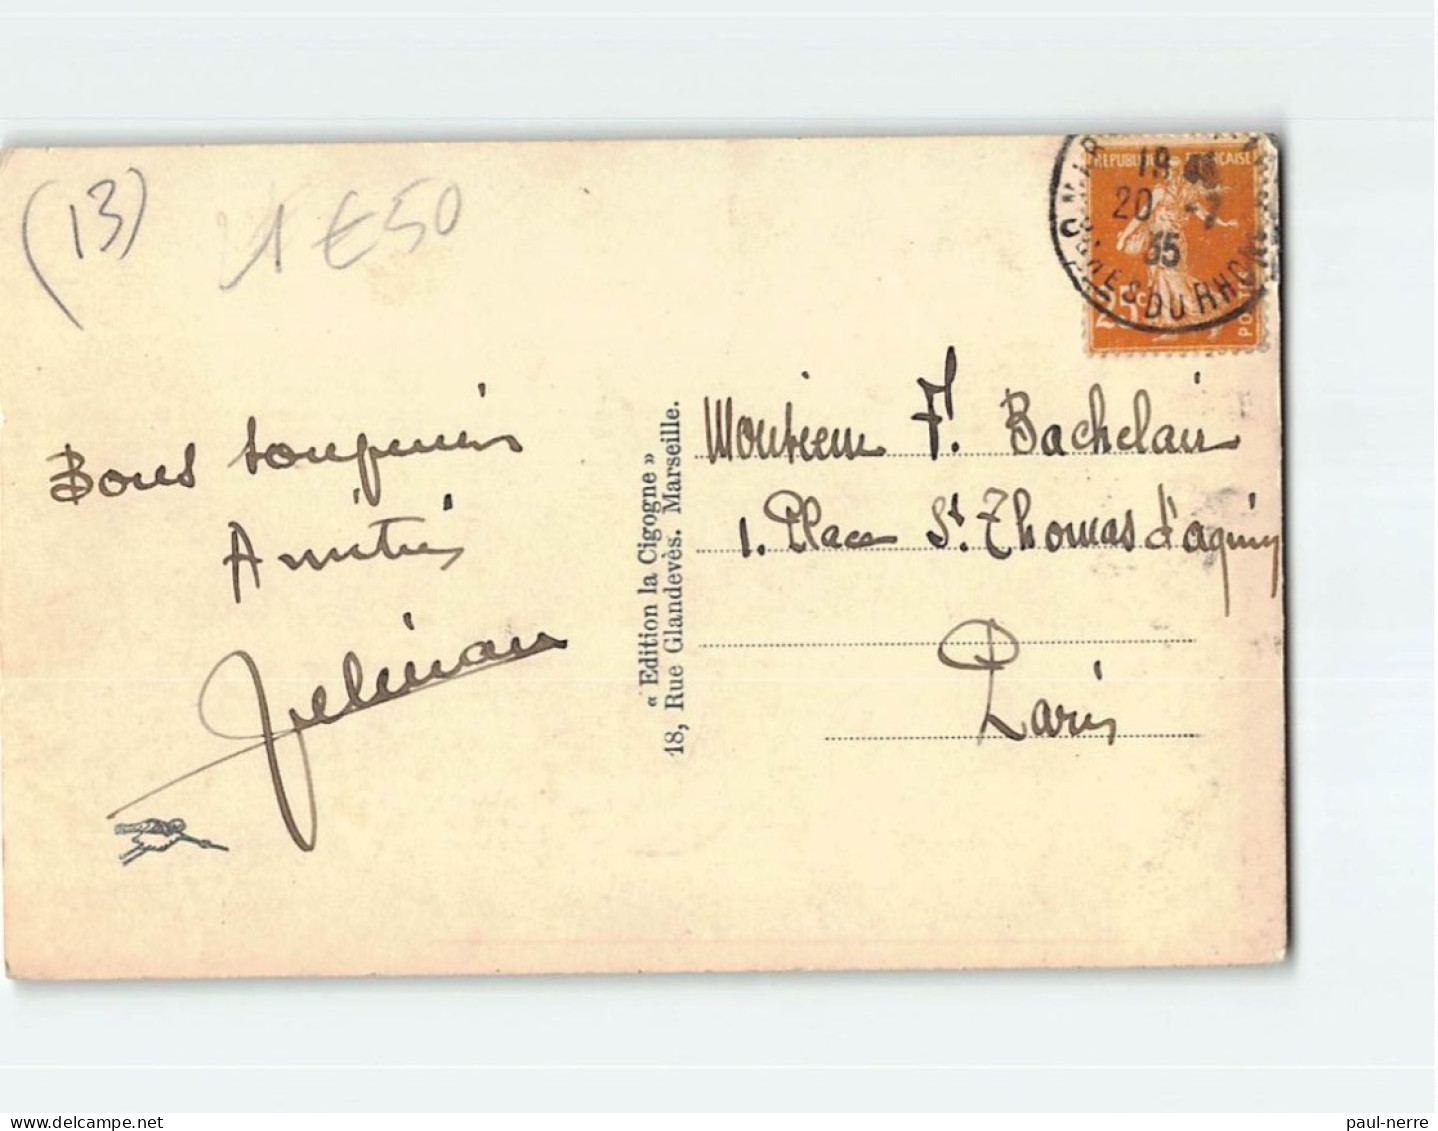 (13)
1€50
RÉPUBLIQUE FRANÇAISE
19
20 -7
35
DU RHONE
25c
Bons souvenirs
Amitiés
« Edition la Cigogne »
18, Rue Glandevès. Marseille.
Monsieur F. Bachelair
1. Place St. Thomas d'aquin
Paris
paul-nerre